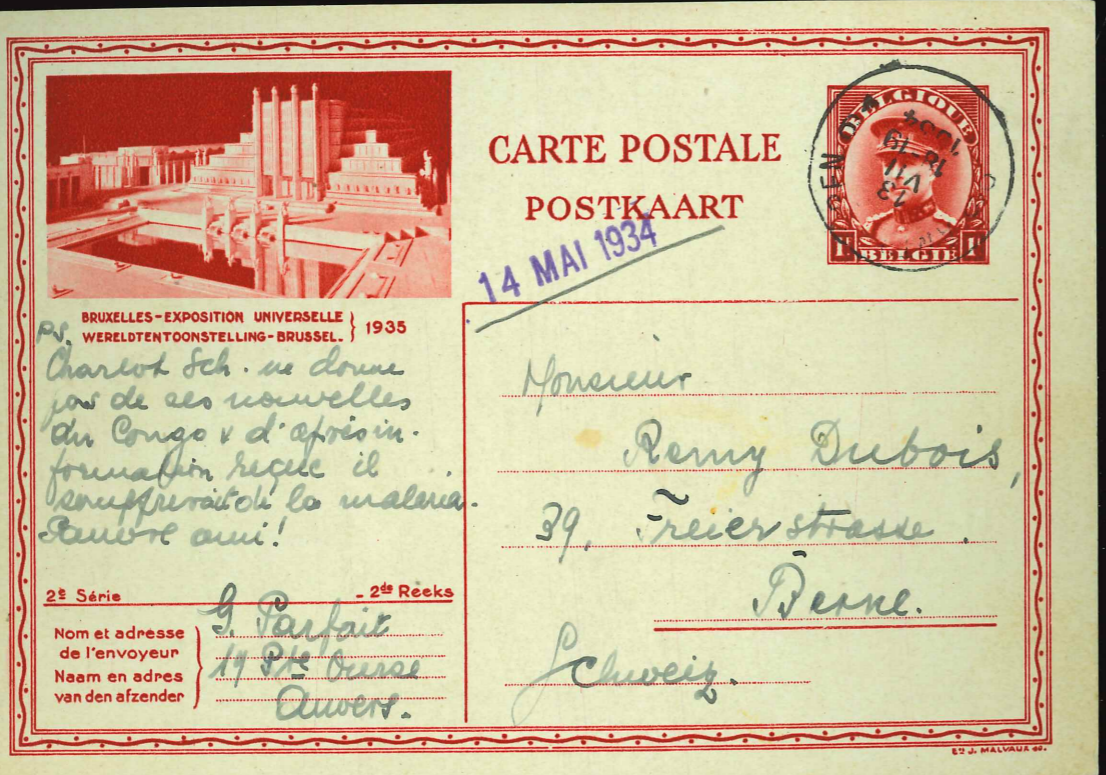 CARTE POSTALE
POSTKAART
14 MAI 1934
BELGIQUE
1F 1F
BELGIË
BRUXELLES-EXPOSITION UNIVERSELLE
WERELDTENTOONSTELLING-BRUSSEL.
1935
P.S.
Charlot Sch. ne donne
pas de ses nouvelles
du Congo & d'après in-
formation reçue il
souffrirait de la malaria.
Pauvre ami!
2e Série - 2de Reeks
Nom et adresse
de l'envoyeur
Naam en adres
van den afzender
G. Parfait
17 Pte Ourse
Anvers.
Monsieur
Remy Dubois,
39, Freierstrasse.
Berne.
Schweiz.
Ets J. MALVAUX